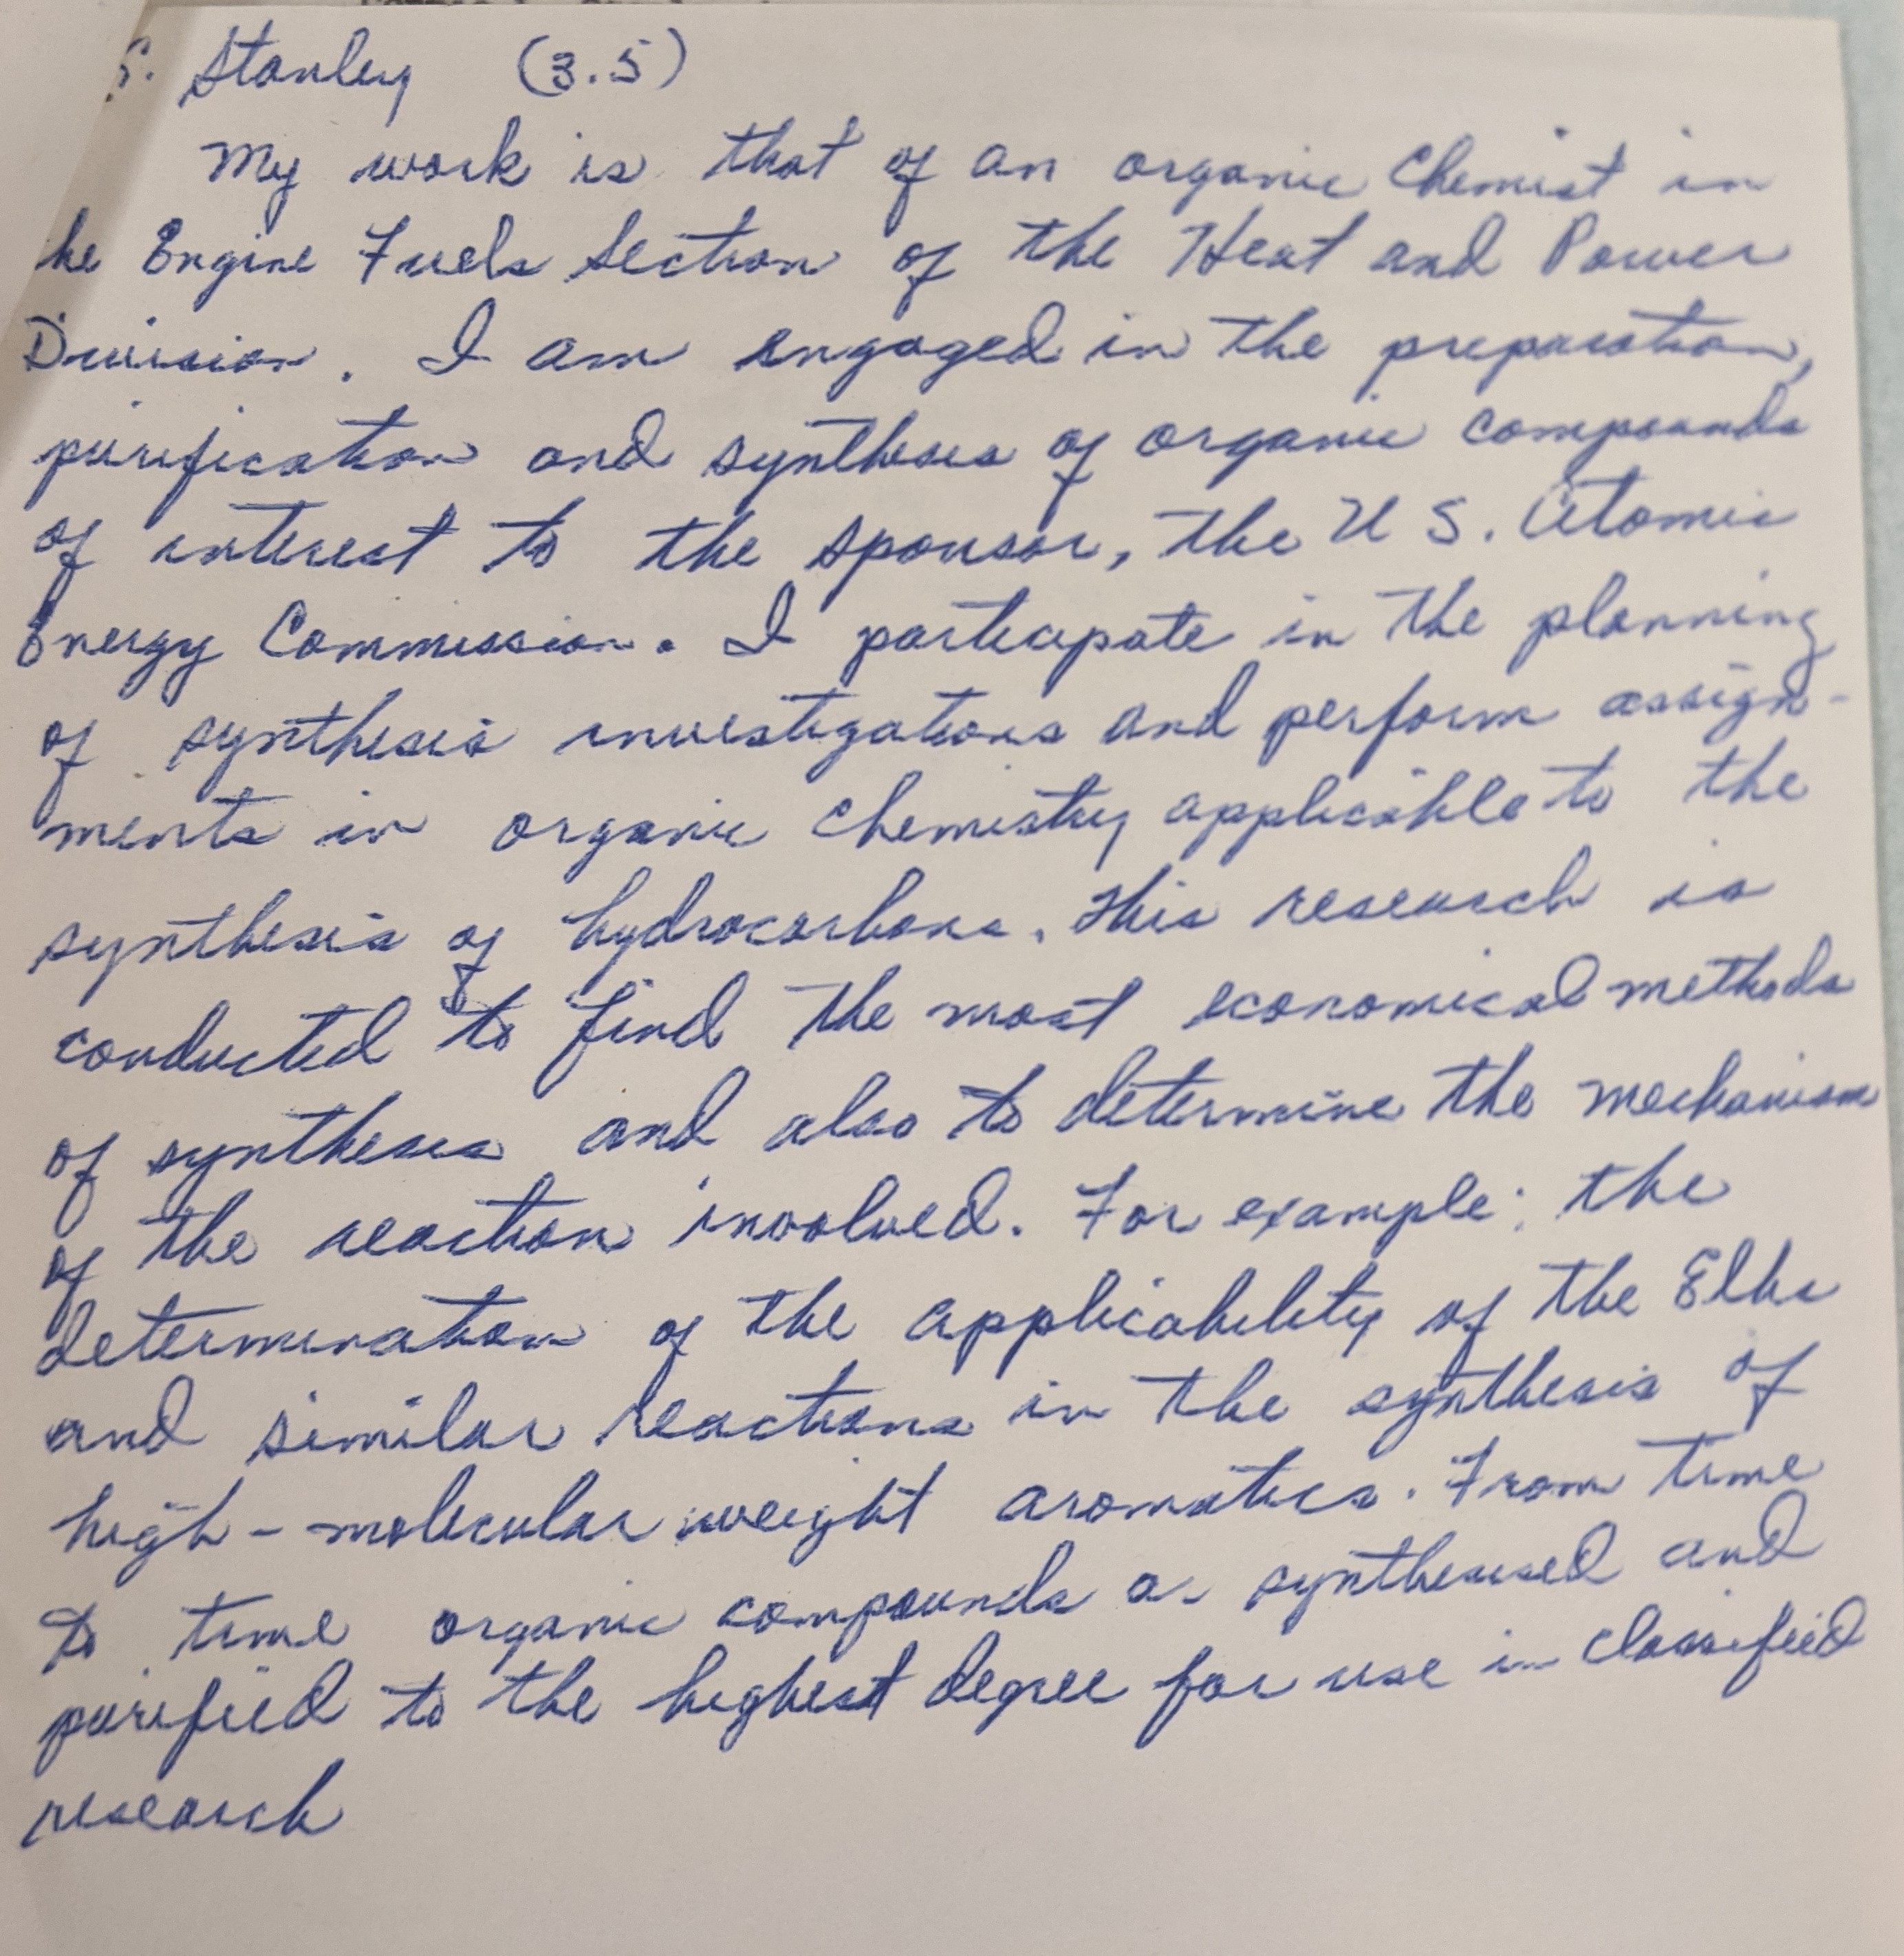 S. Stanley (3.5)
My work is that of an organic Chemist in
he Engine Fuels Section of the Heat and Power
Division. I am engaged in the preparation,
purification and synthesis of organic compounds
of interest to the sponsor, the U S. Atomic
Energy Commission. I participate in the planning
of synthesis investigations and perform assign-
ments in organic chemistry applicable to the
synthesis of hydrocarbons. This research is
conducted to find the most economical methods
of synthesis and also to determine the mechanism
of the reaction involved. For example: the
determination of the applicability of the Elbs
and similar reactions in the synthesis of
high-molecular weight aromatics. From time
to time organic compounds a synthesised and
purified to the highest degree for use in classified
research